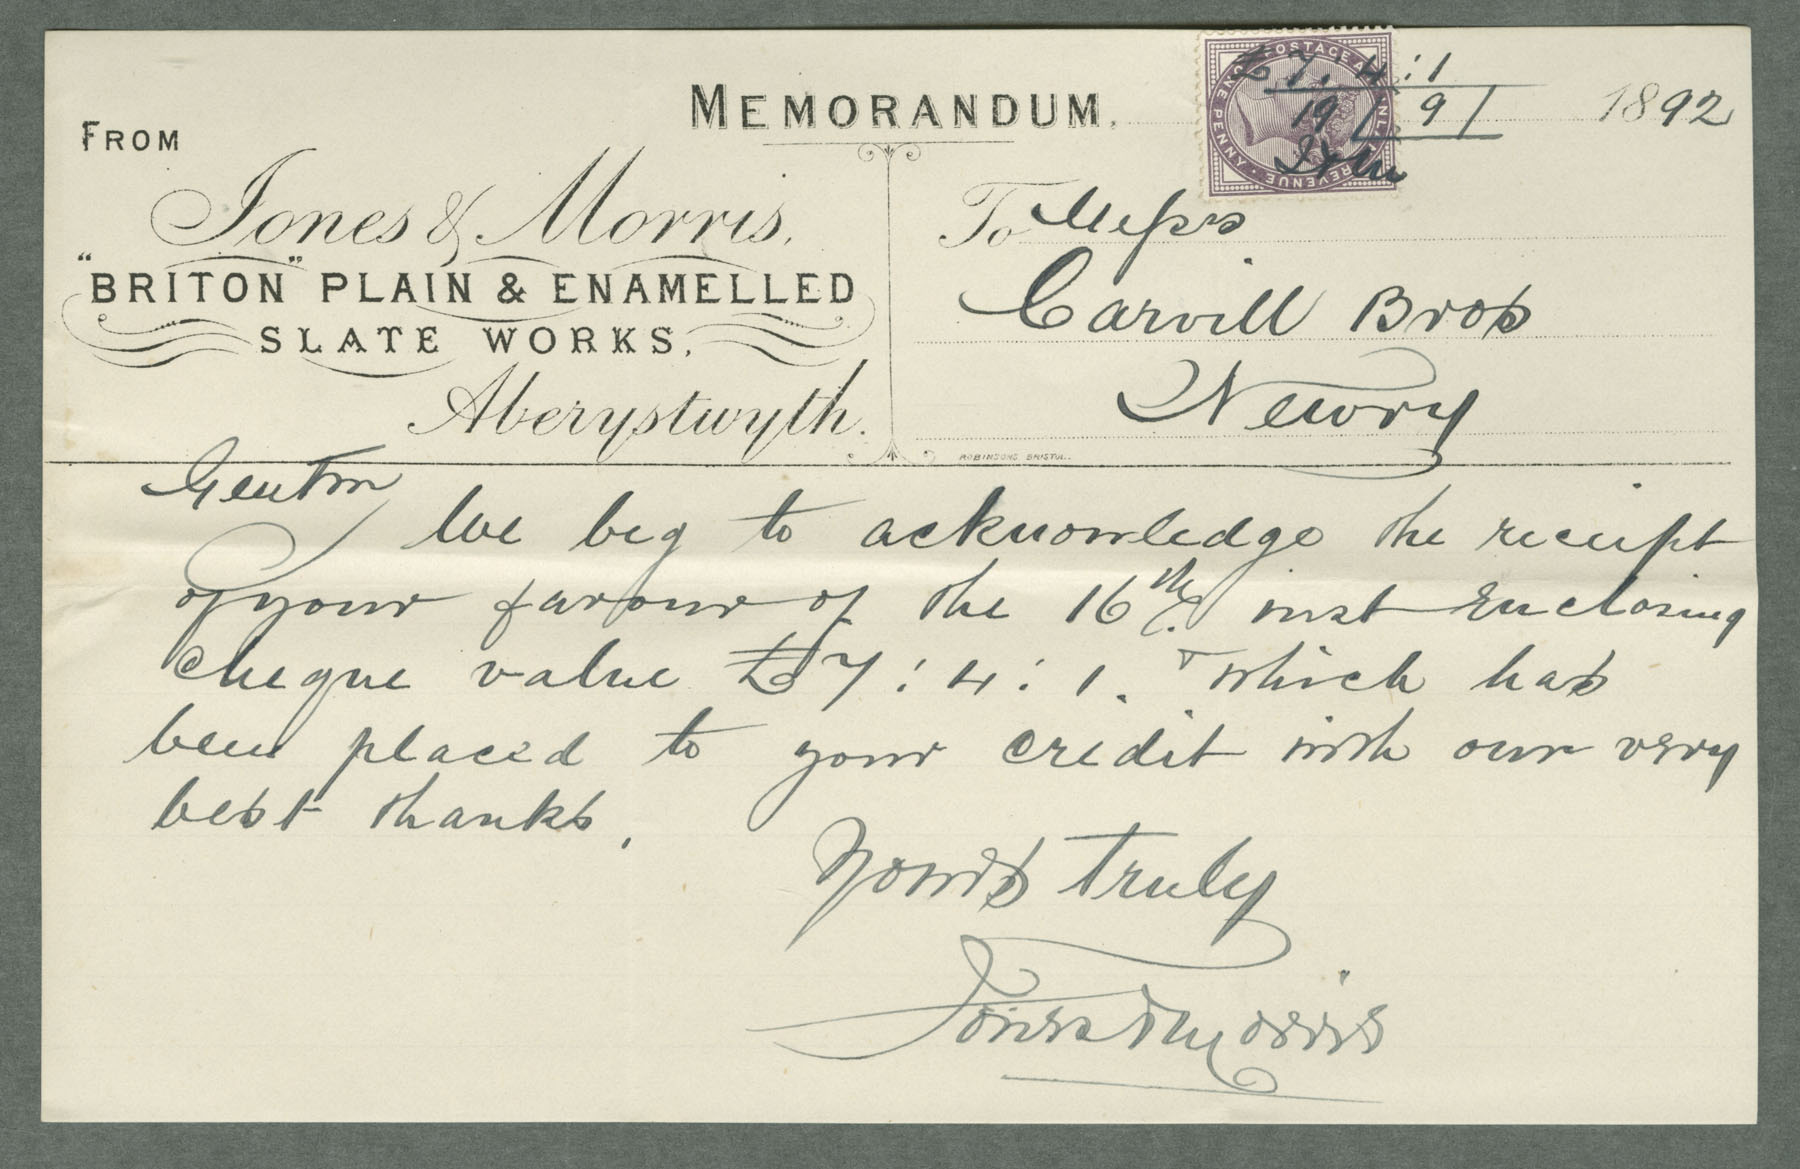 MEMORANDUM.
£7:4:1
19/9/ 1892
J&M
POSTAGE AND INLAND REVENUE
ONE PENNY
FROM
Jones & Morris,
"BRITON" PLAIN & ENAMELLED
SLATE WORKS,
Aberystwyth.
To Messrs
Carvill Bros
Newry
ROBINSONS BRISTOL.
Gentm
We beg to acknowledge the receipt
of your favour of the 16th inst Enclosing
cheque value £7:4:1. which has
been placed to your credit with our very
best thanks.
Yours truly
Jones & Morris